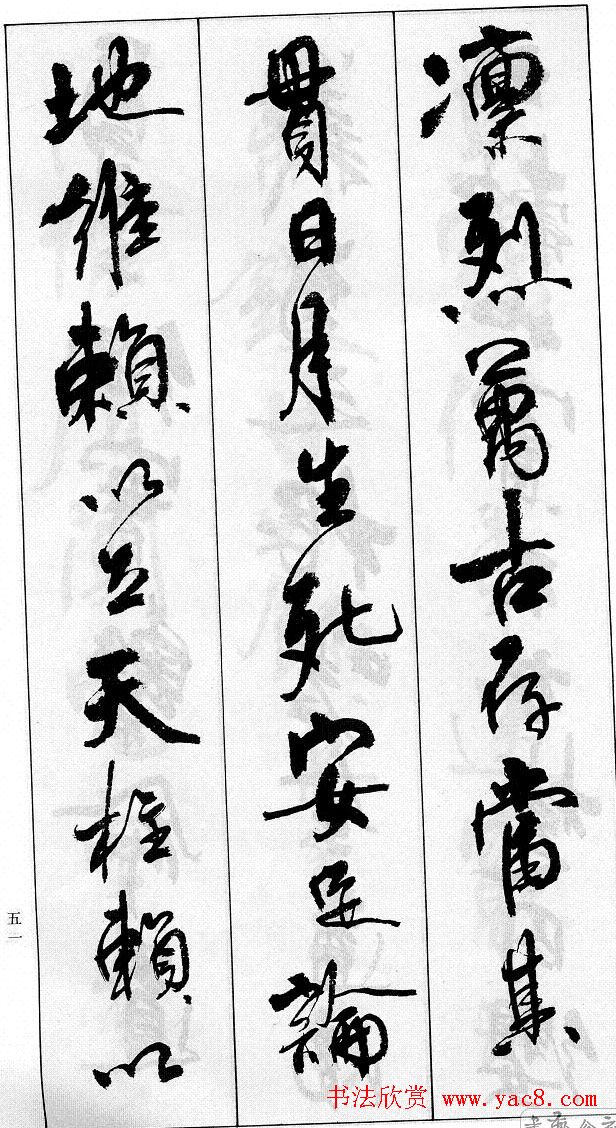 凜烈萬古存當其
貫日月生死安足論
地維賴以立天柱賴以
五一
书法欣赏 www.yac8.com